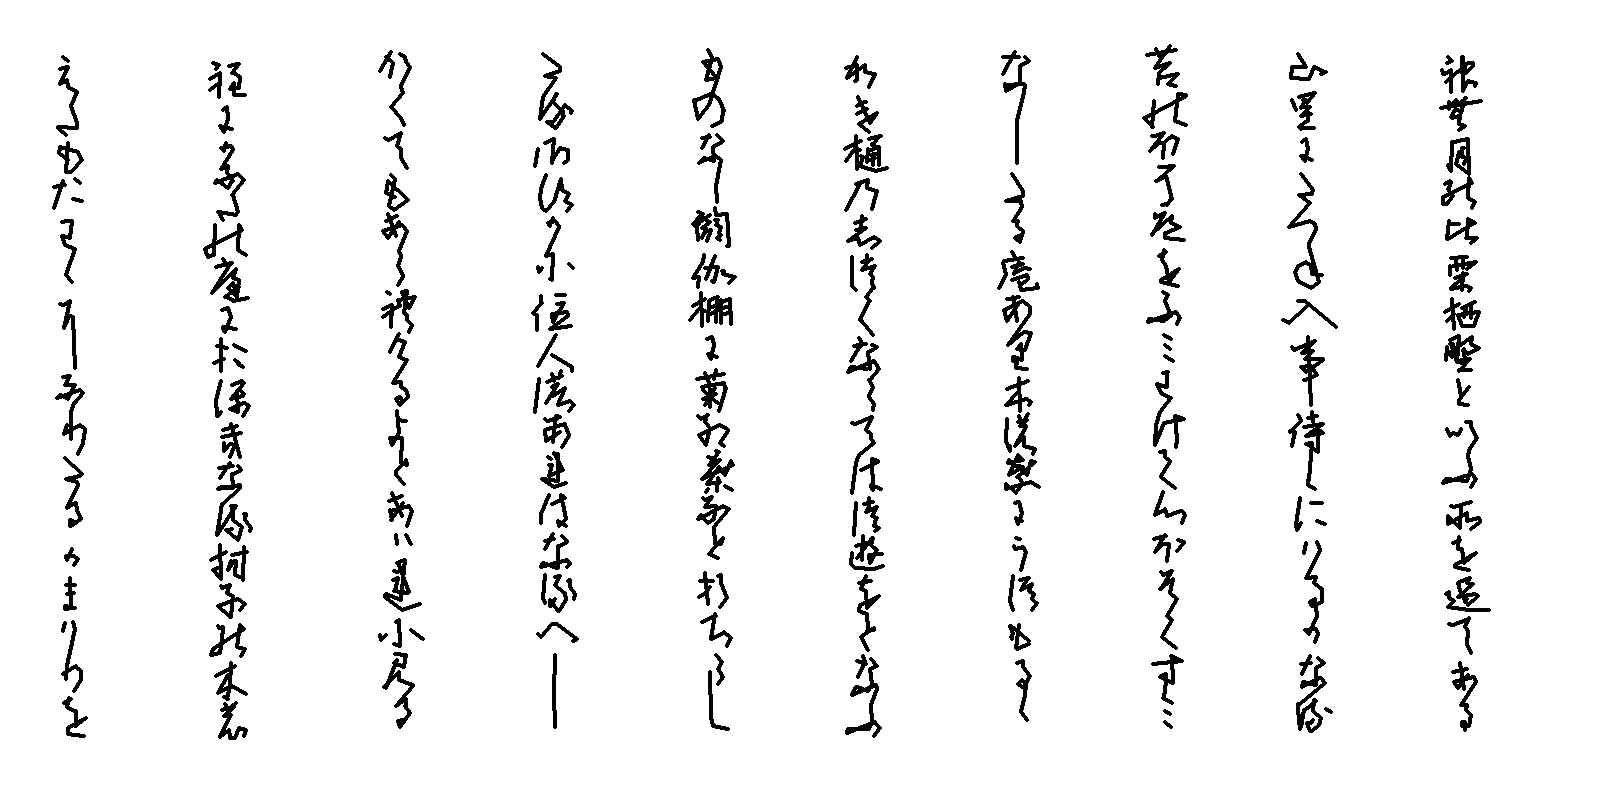 神無月の比栗栖野といふ所を過てある
山里にたつね入事侍しにはるかなる
苔のほそ道をふみわけて心ほそくすみ
なしたる庵あり木の葉にうつもるゝ
かけ樋のしつくならてはつゆをとなふ
ものなし閼伽棚に菊紅葉なと折ちらし
たるさすかに住人のあれはなるへし
かくてもあられけるよとあはれに見る
程にかなたの庭におほきなる柑子の木の
えたもたわゝになりたるかまはりを